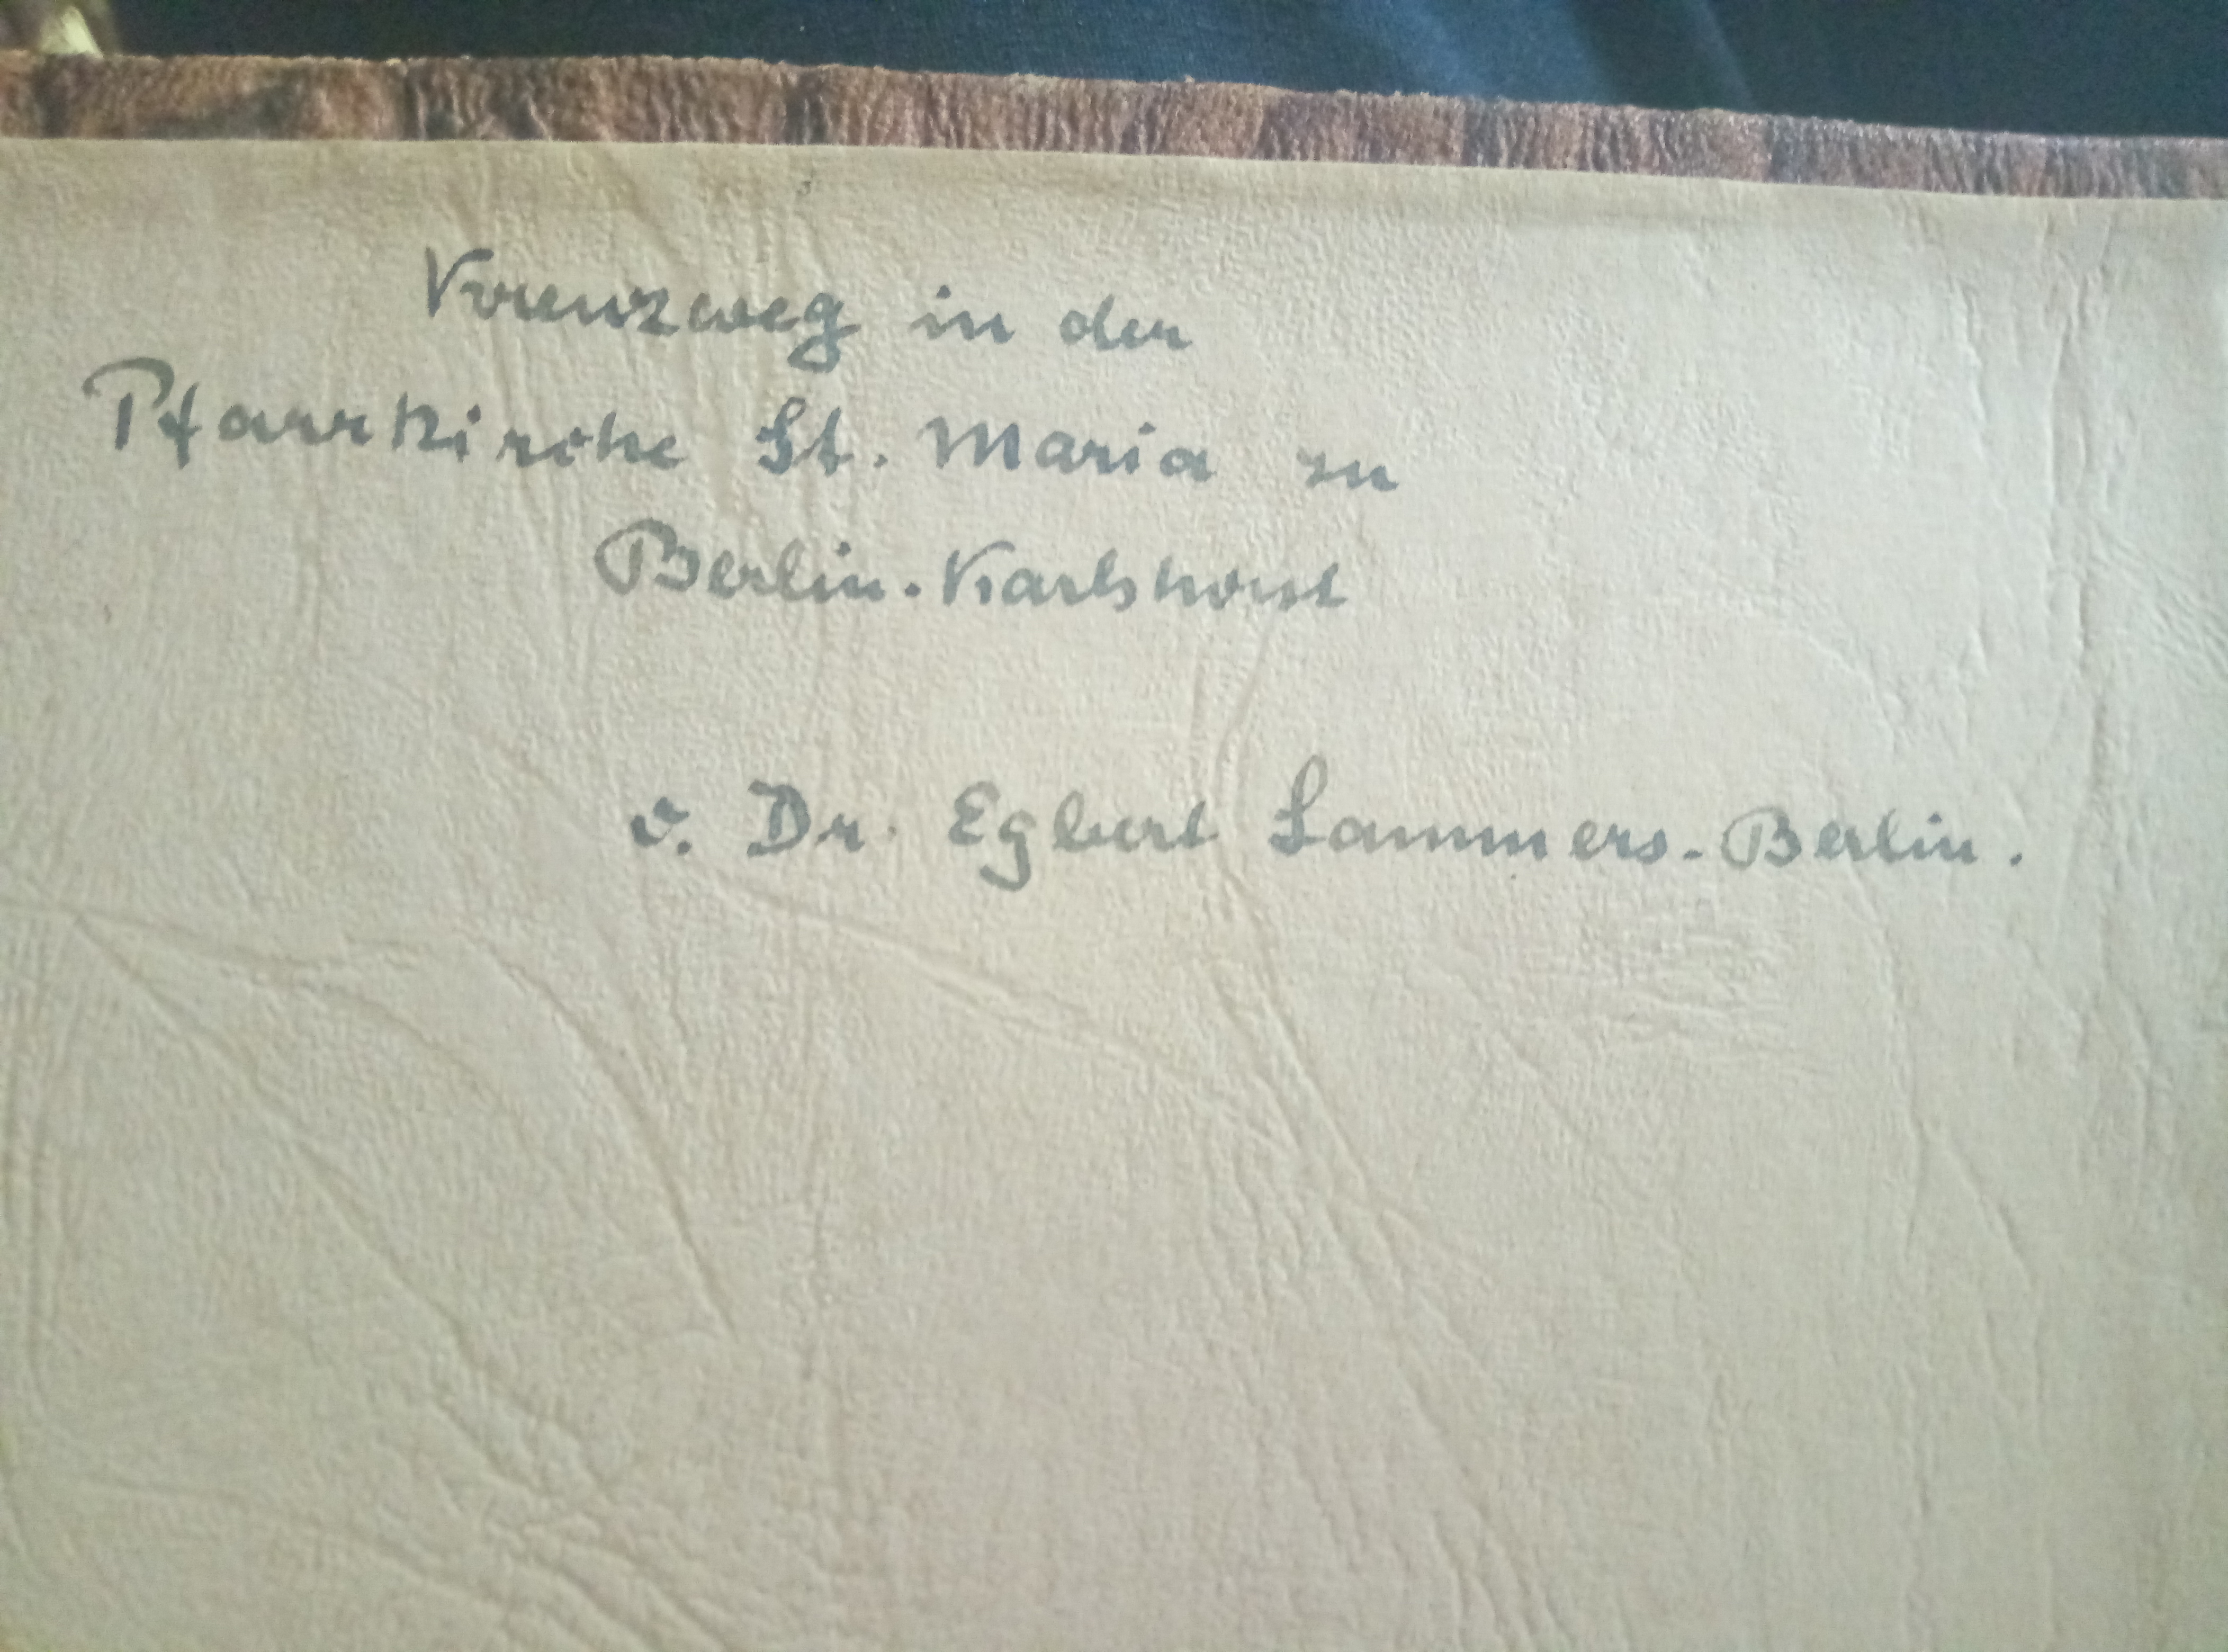 Kreuzweg in der
Pfarrkirche St. Maria zu
Berlin-Karlshorst
v. Dr. Egbert Lammers-Berlin.